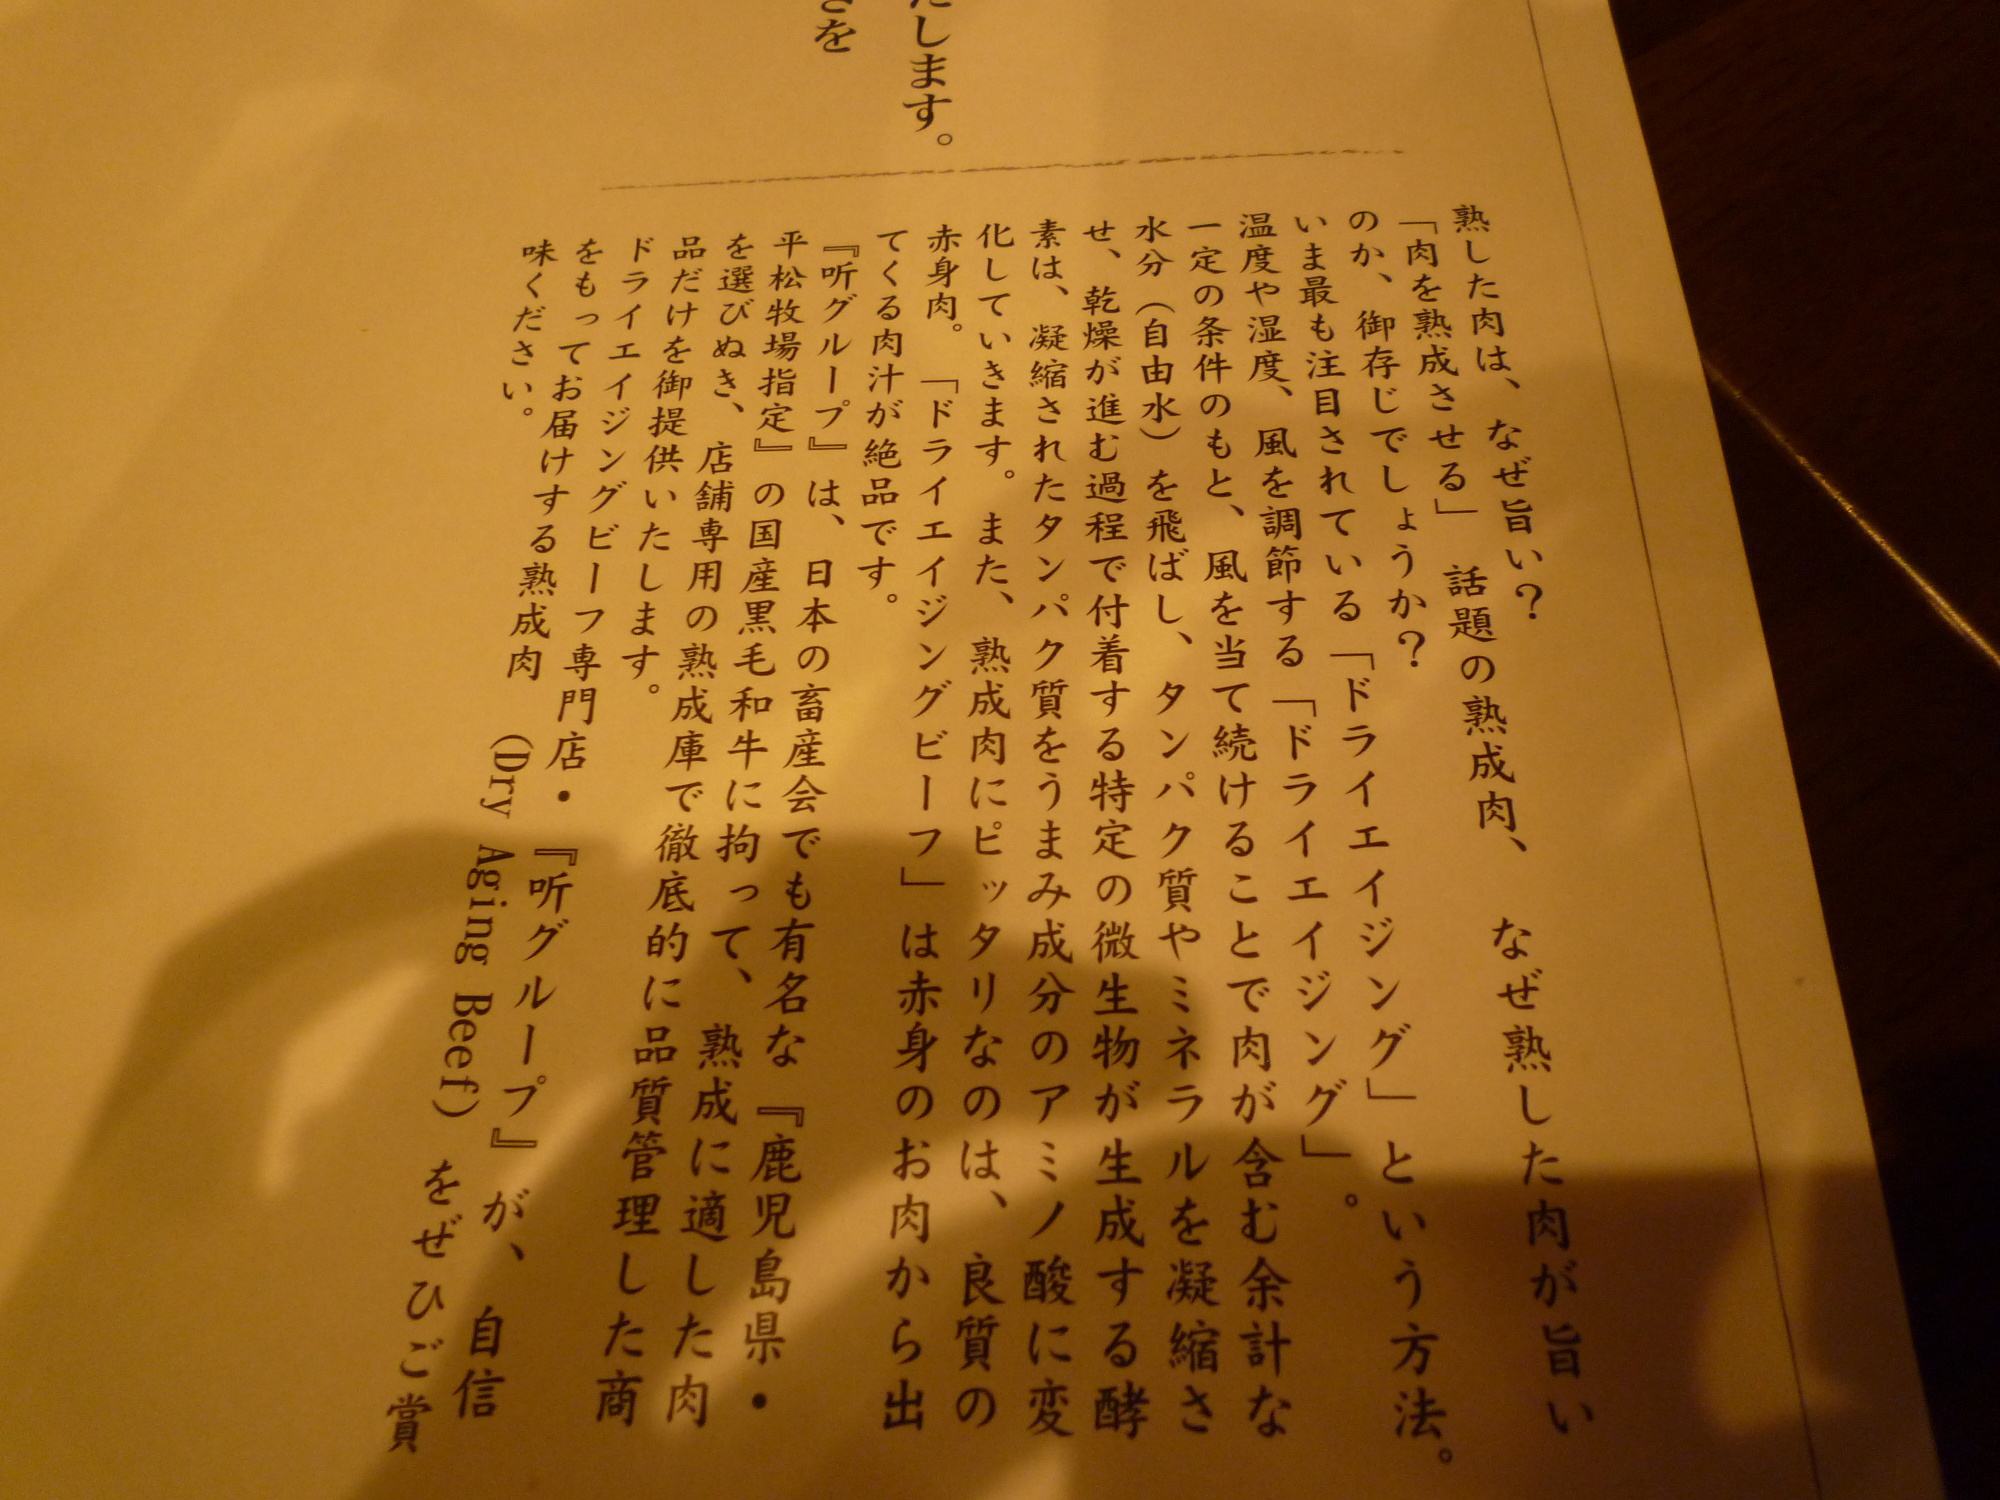 たします。
さを
熟した肉は、なぜ旨い？
「肉を熟成させる」 話題の熟成肉、 なぜ熟した肉が旨い
のか、御存じでしょうか？
いま最も注目されている「ドライエイジング」という方法。
温度や湿度、風を調節する「ドライエイジング」。
一定の条件のもと、風を当て続けることで肉が含む余計な
水分（自由水）を飛ばし、タンパク質やミネラルを凝縮さ
せ、乾燥が進む過程で付着する特定の微生物が生成する酵
素は、凝縮されたタンパク質をうまみ成分のアミノ酸に変
化していきます。また、熟成肉にピッタリなのは、良質の
赤身肉。「ドライエイジングビーフ」は赤身のお肉から出
てくる肉汁が絶品です。
『听グループ』は、日本の畜産会でも有名な『鹿児島県・
平松牧場指定』の国産黒毛和牛に拘って、熟成に適した肉
を選びぬき、店舗専用の熟成庫で徹底的に品質管理した商
品だけを御提供いたします。
ドライエイジングビーフ専門店・『听グループ』が、自信
をもってお届けする熟成肉 (Dry Aging Beef) をぜひご賞
味ください。